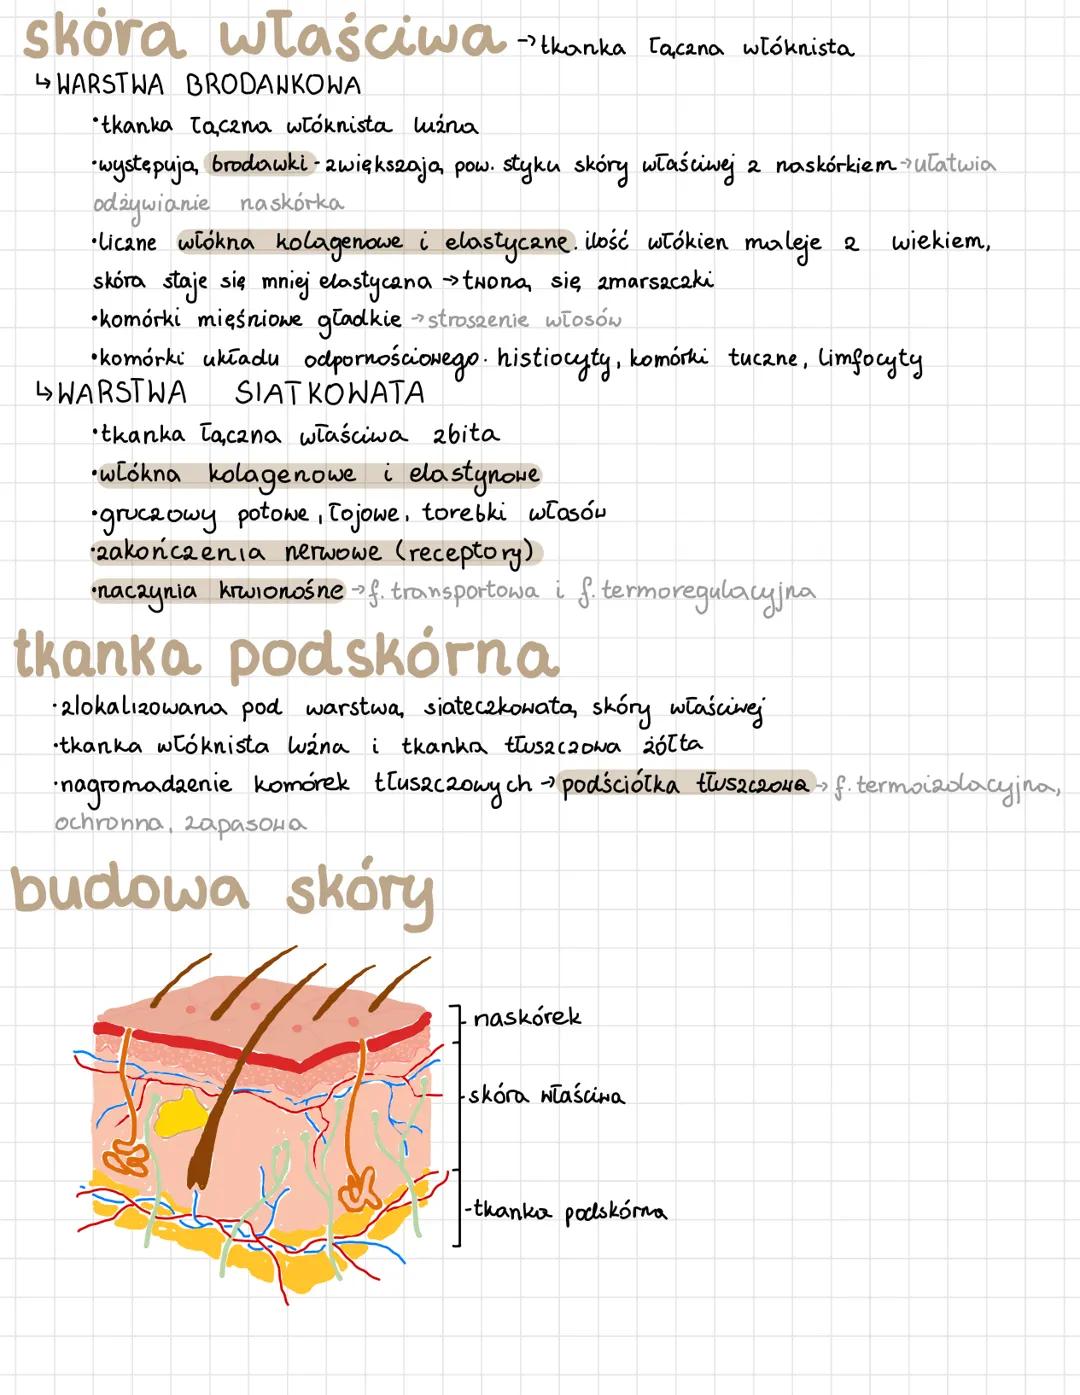 skóra właściwa → tkanka łączna włóknista
↳ WARSTWA BRODAWKOWA
•tkanka łączna włóknista luźna
•występują brodawki - zwiększają pow. styku skóry właściwej z naskórkiem → ułatwia
odżywianie naskórka
•liczne włókna kolagenowe i elastyczne. ilość włókien maleje z wiekiem,
skóra staje się mniej elastyczna → tworzą się zmarszczki
•komórki mięśniowe gładkie → stroszenie włosów
•komórki układu odpornościowego. histiocyty, komórki tuczne, limfocyty
↳ WARSTWA SIATKOWATA
•tkanka łączna właściwa zbita
•włókna kolagenowe i elastynowe
•gruczowy potowe, łojowe, torebki włosów
•zakończenia nerwowe (receptory)
•naczynia krwionośne → f. transportowa i f. termoregulacyjna
tkanka podskórna
•zlokalizowana pod warstwą siateczkowatą skóry właściwej
•tkanka włóknista luźna i tkanka tłuszczowa żółta
•nagromadzenie komórek tłuszczowych → podściółka tłuszczowa → f. termoizolacyjna,
ochronna, zapasowa
budowa skóry
- naskórek
- skóra właściwa
- tkanka podskórna